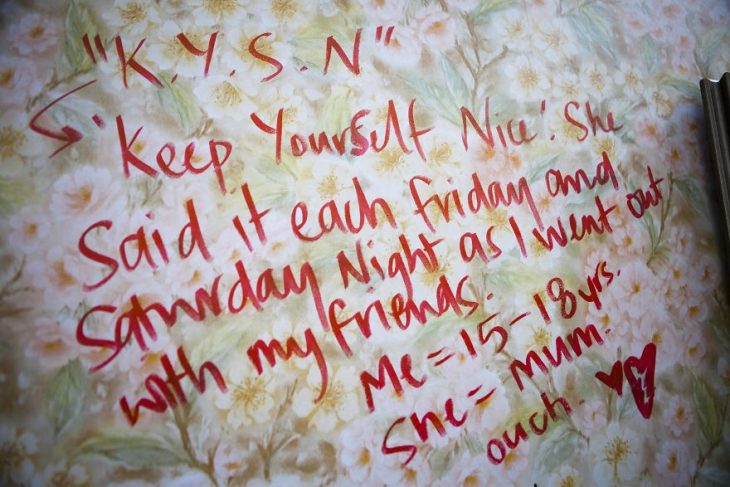 "K.Y.S.N"
'Keep Yourself Nice'. She
Said it each friday and
Saturday Night as I went out
with my friends.
Me = 15-18 yrs.
She = mum.
ouch.